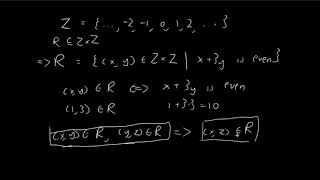 Z = {..., -2, -1, 0, 1, 2, ...}
R ⊆ Z×Z
=> R = {(x, y) ∈ Z×Z | x+3y is even}
(x,y) ∈ R <=> x+3y is even
(1,3) ∈ R 1+3·3=10
(x,y) ∈ R, (y,z) ∈ R => (x,z) ∈ R